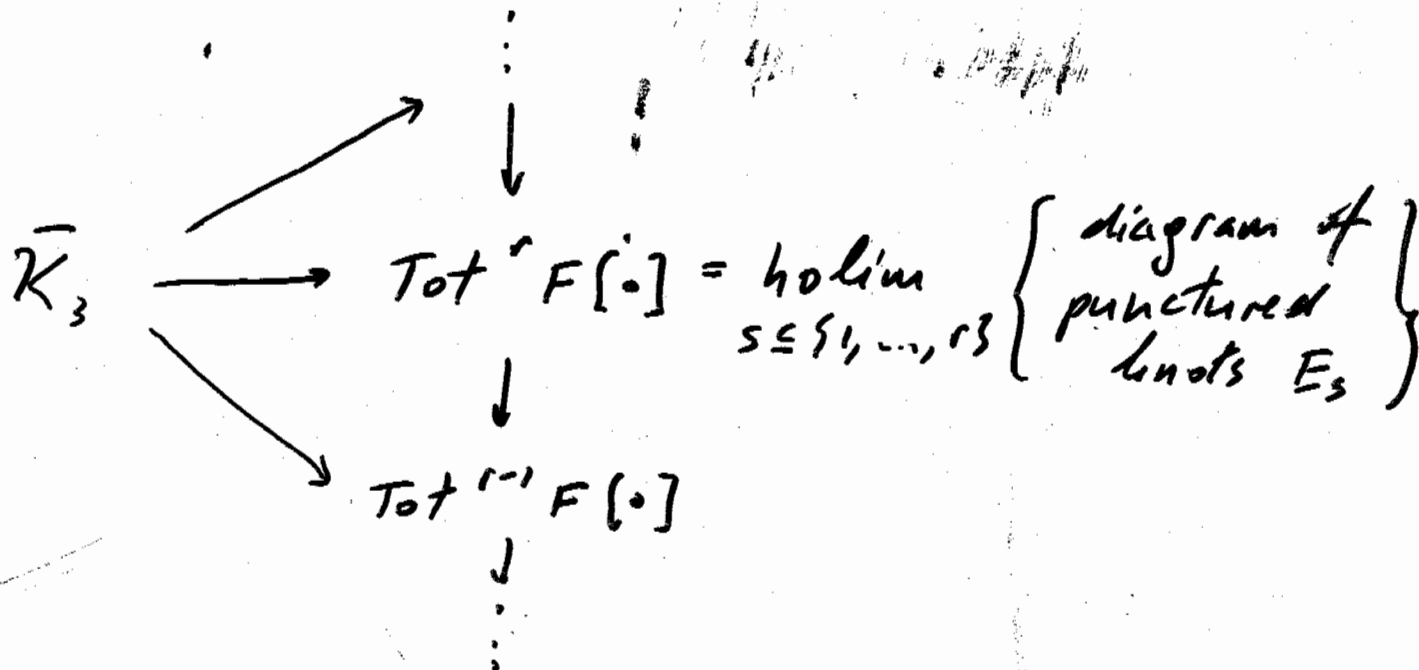 K̄₃
Tot^r F[•] = holim { diagram of
s ⊆ {1, ..., r} punctured
knots E_s }
Tot^{r-1} F[•]